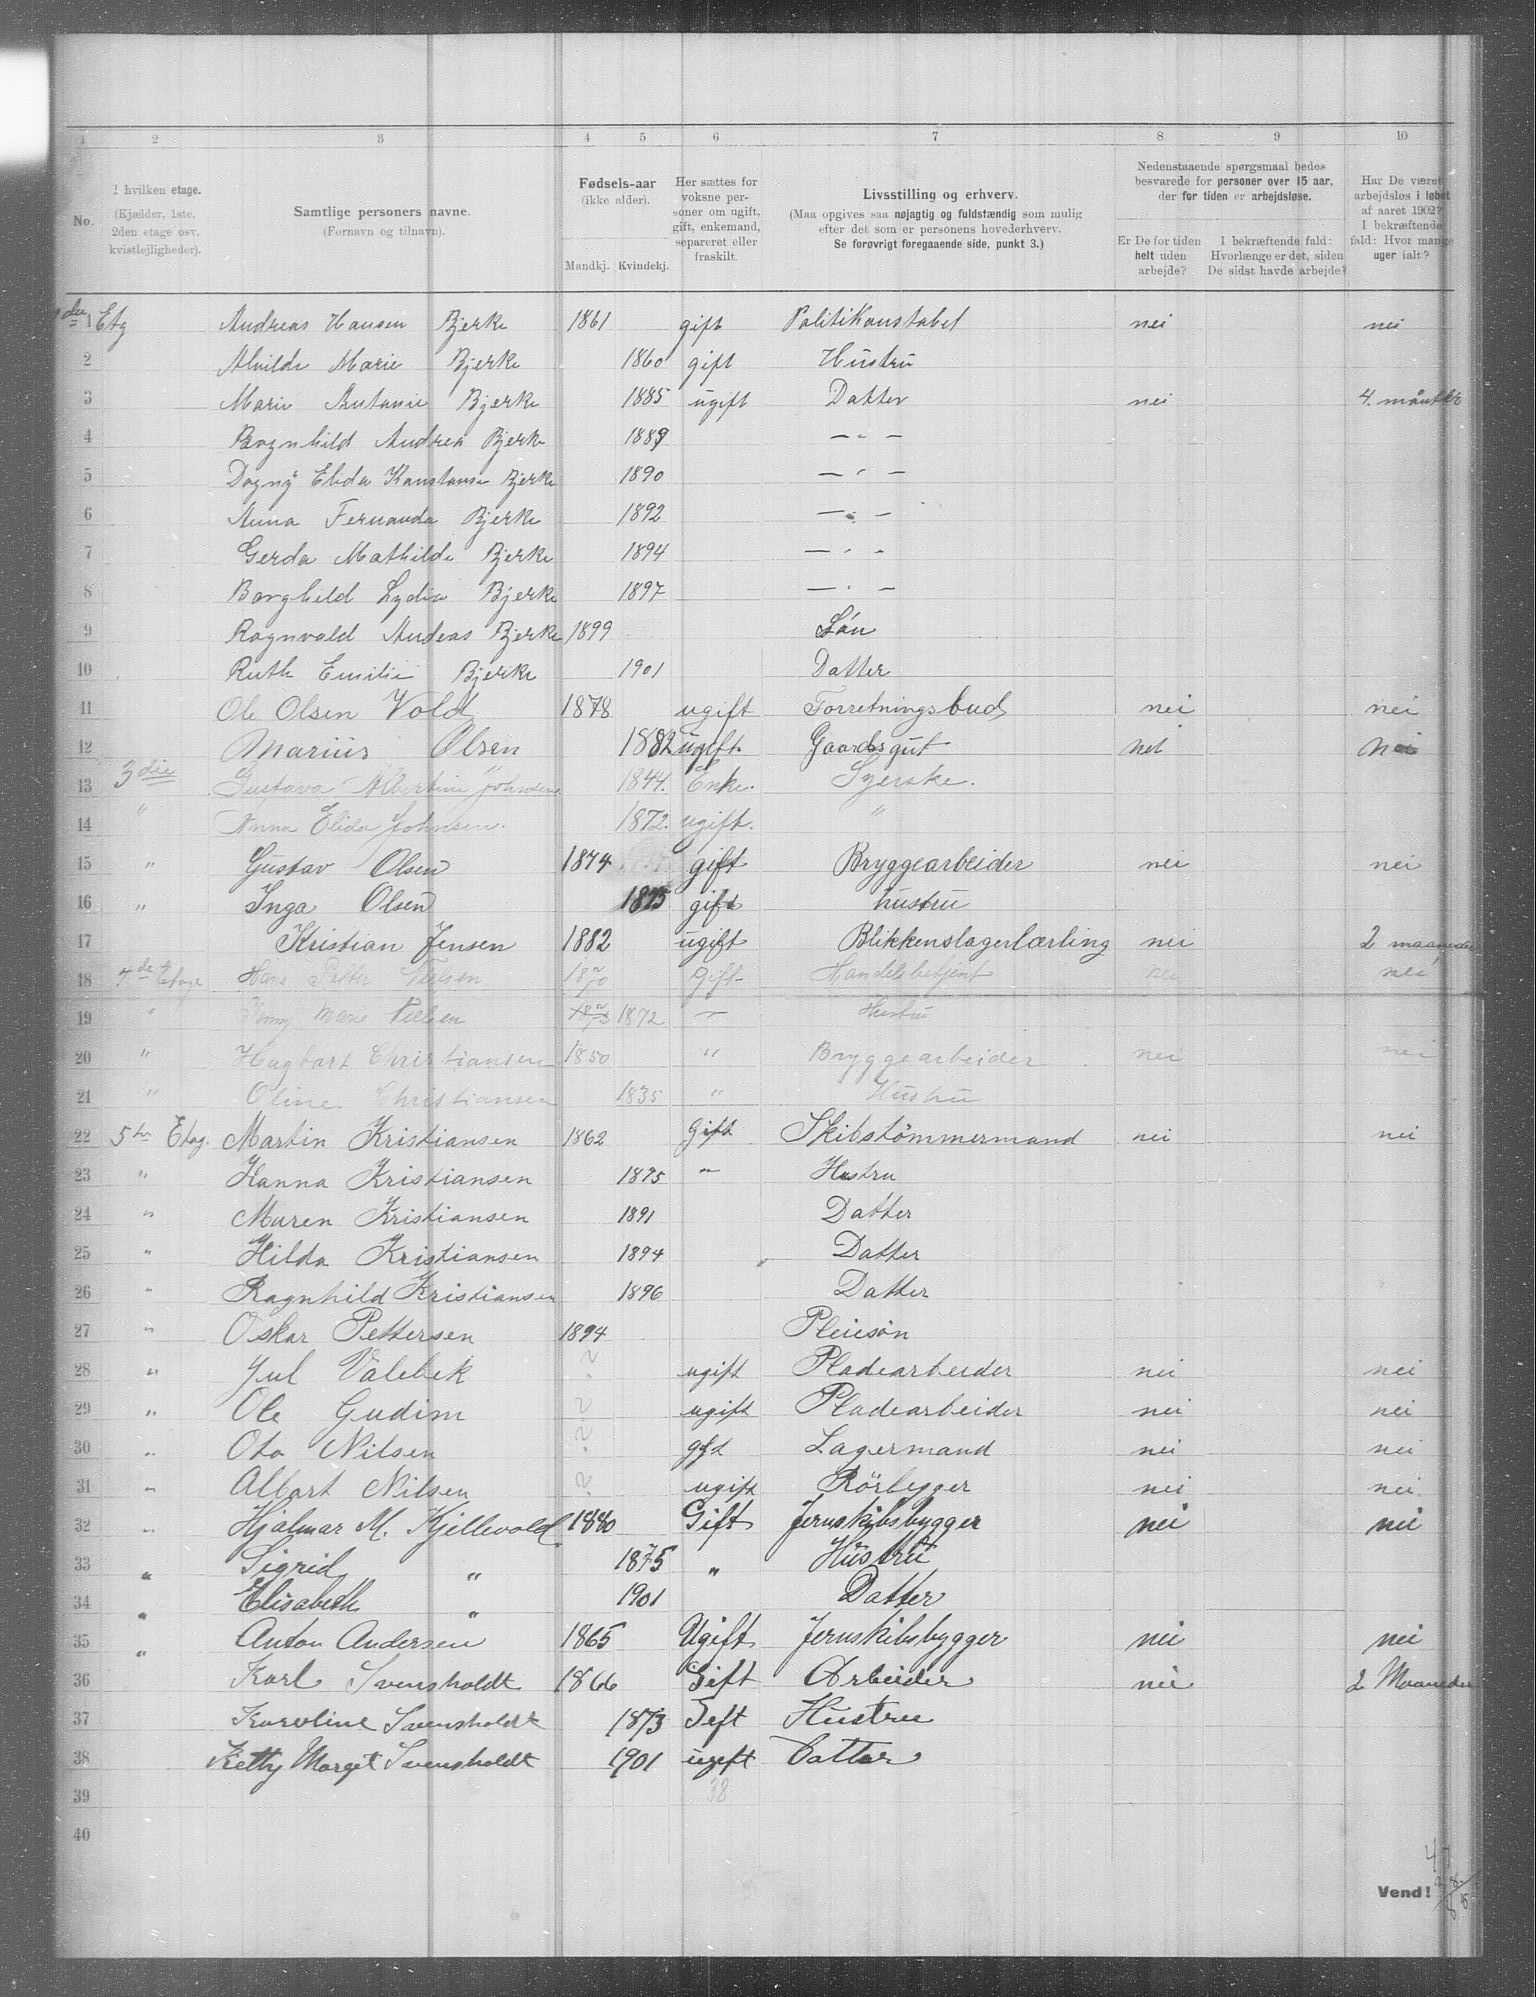 1 2 3 4 5 6 7 8 9 10
No.
I hvilken etage. (Kjælder, 1ste. 2den etage osv. kvistlejligheder).
Samtlige personers navne. (Fornavn og tilnavn).
Fødsels-aar (ikke alder). Mandkj. Kvindekj.
Her sættes for voksne personer om ugift, gift, enkemand, separeret eller fraskilt.
Livsstilling og erhverv. (Maa opgives saa nøjagtig og fuldstændig som mulig efter det som er personens hovederhverv. Se forøvrigt foregaaende side, punkt 3.)
Nedenstaaende spørgsmaal bedes besvarede for personer over 15 aar, der for tiden er arbejdsløse.
Er De for tiden helt uden arbejde?
I bekræftende fald: Hvorlænge er det, siden De sidst havde arbejde?
Har De været arbejdsløs i løbet af aaret 1902? I bekræftende fald: Hvor mange uger ialt?
1 Etg Andreas Hansen Bjerke 1861 gift Politikonstabel nei nei
2 Alvilde Marie Bjerke 1860 gift Hustru
3 Marie Antonie Bjerke 1885 ugift Datter nei 4.
4 Ragnhild Andrea Bjerke 1889 — " —
5 Dagny Elida Konstanse Bjerke 1890 — " —
6 Anna Fernanda Bjerke 1892 — " —
7 Gerda Mathilde Bjerke 1894 — " —
8 Borghild Lydia Bjerke 1897 — " —
9 Ragnvald Andeas Bjerke 1899 Sön
10 Ruth Emilie Bjerke 1901 Datter
11 Ole Olsen Vold 1878 ugift Forretningsbud nei nei
12 Marius Olsen 1882 ugift. Gaardsgut nei nei
13 3die Gustava Albertine Johnsen 1844. Enke. Syerske.
14 " Anna Elida Johnsen. 1872. ugift. "
15 " Gustav Olsen 1874 gift Bryggearbeider nei nei
16 " Inga Olsen 1875 gift hustru
17 Kristian Jensen 1882 ugift Blikkenslagerlærling nei 2 maaneder
18 4de Etage Hans Petter Nielsen 1870 Gift Handelsbetjent nei nei
19 " Marie Nielsen 1872 " Hustru
20 " Hagbart Christiansen 1850 " Bryggearbeider nei nei
21 " Oline Christiansen 1835 " Hustru
22 5te Etag. Martin Kristiansen 1862 Gift Skibstömmermand nei nei
23 " Hanna Kristiansen 1875 " Hustru
24 " Maren Kristiansen 1891 Datter
25 " Hilda Kristiansen 1894 Datter
26 " Ragnhild Kristiansen 1896 Datter
27 " Oskar Pettersen 1894 Pleiesön
28 " Jul Valebek ? ugift Pladearbeider nei nei
29 " Ole Gudim ? ugift Pladearbeider nei nei
30 " Oto Nilsen ? gift Lagermand nei nei
31 " Albart Nilsen ? ugift Rörlegger nei nei
32 " Hjalmar M. Kjellevold. 1880 Gift Jernskibsbygger nei nei
33 " Sigrid " 1875 " Hustru
34 " Elisabeth " 1901 Datter
35 " Anton Andersen 1865 Ugift Jernskibsbygger nei nei
36 Karl Svensholdt 1866 Gift Arbeider nei 2 Maaneder
37 Karoline Svensholdt 1873 Geft Hustru
38 Ketty Marget Svensholdt 1901 ugeft Datter
39 38
40
Vend!